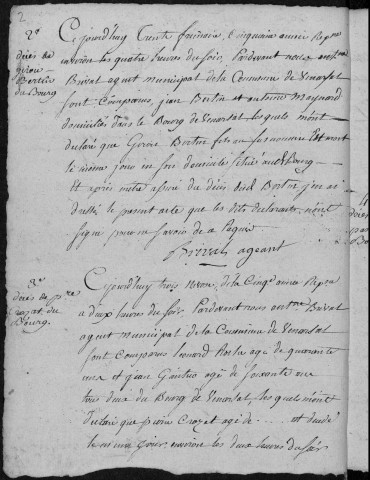 2
2e
décès de
girou
Bertin
du Bourg
Cejourd'huy trente frimaire, cinquieme année Repne
environ les quatre heures du soir, Pardevant nous
Brival agent municipal de la Commune de Venarsal
sont comparus, jean Bertin et antoine Maynard
domiciliés dans le Bourg de Venarsal lesquels m'ont
déclaré que Bertin est mort
le même jour en son domicile situé au Bourg
Et après m'être assuré du décès dud Bertin j'en ai
dressé le present acte que les dits declarants, n'ont
signé pour ne savoir de ce Requis
Brival ageant
3e
décès de pre
crozat du
Bourg.
Cejourd'huy trois nivose, de la Cinqe année Repne
a deux heures du soir. Pardevant nous Brival
agent municipal de la Commune de Venarsal
sont Comparus leonard agé de quarante
ans et jean agé de soixante
tous deux du Bourg de Venarsal lesquels m'ont
déclaré que pierre Crozat agé de ...... est décédé
le même jour, environ les deux heures du soir